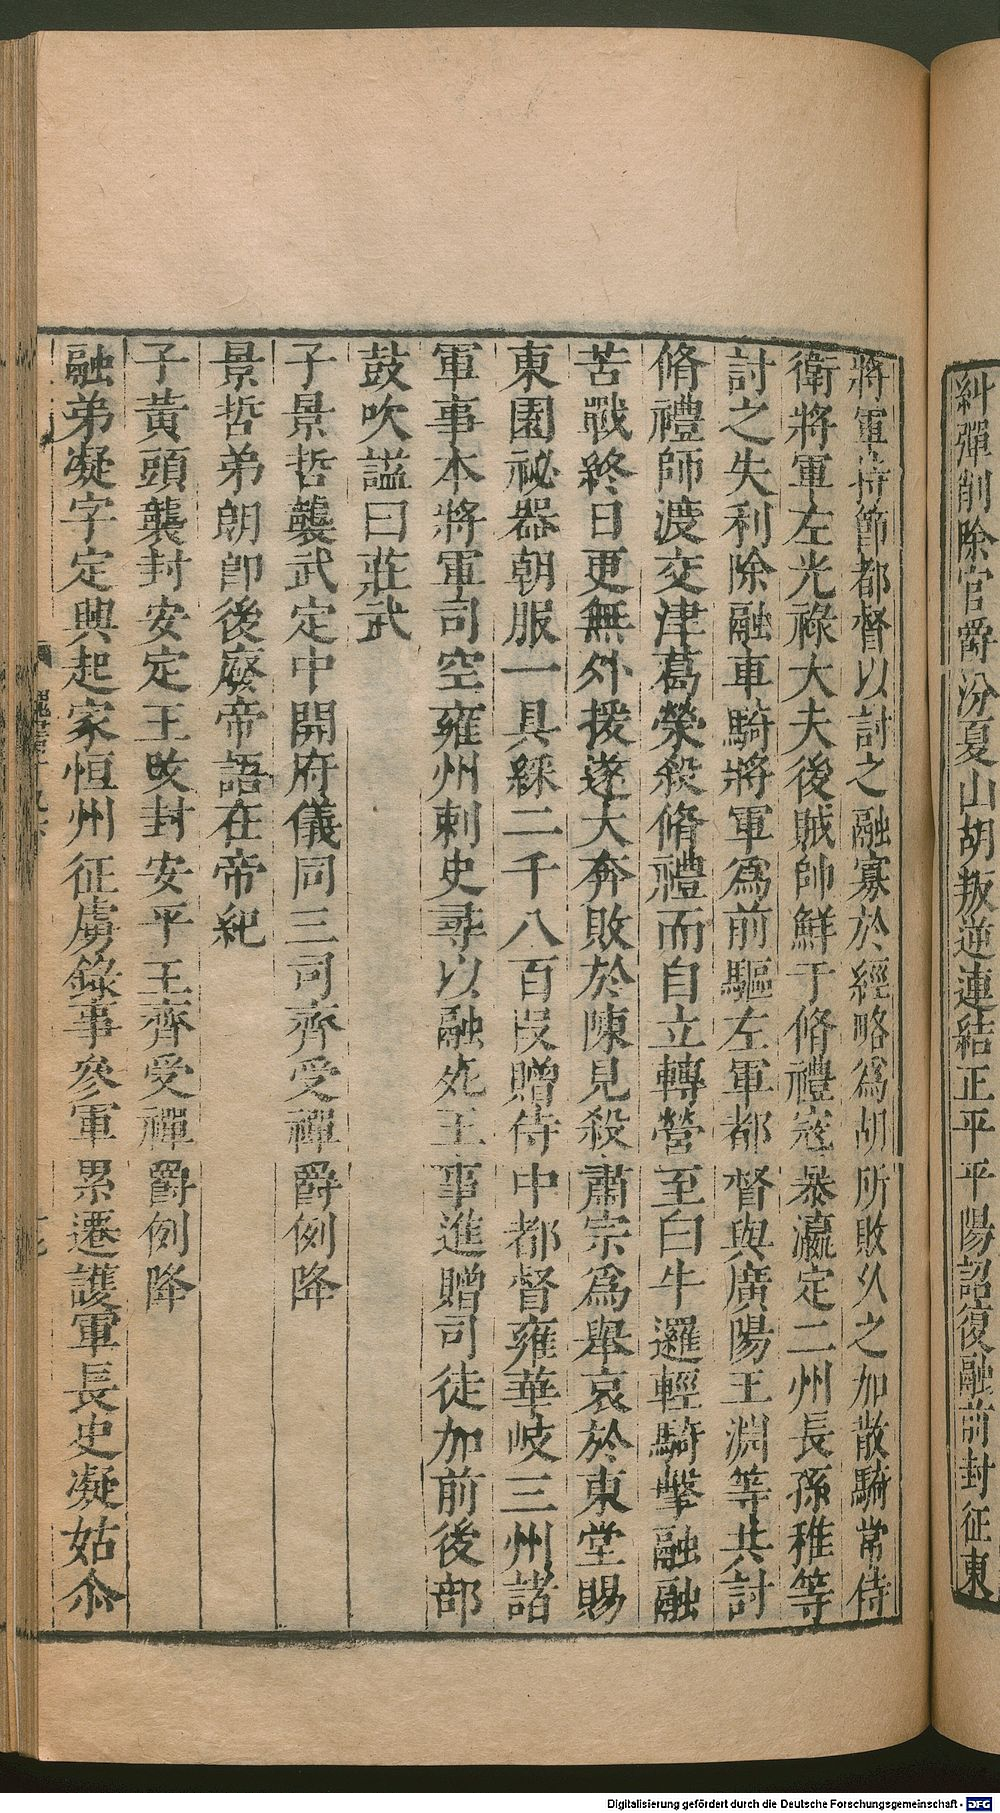 糾彈削除官爵汾夏山胡叛逆連結正平平陽詔復融前封征東
將軍持節都督以討之融寡於經略爲胡所敗久之加散騎常侍
衛將軍左光祿大夫後賊帥鮮于脩禮寇暴瀛定二州長孫稚等
討之失利除融車騎將軍爲前驅左軍都督與廣陽王淵等共討
脩禮師渡交津葛榮殺脩禮而自立轉營至白牛邏輕騎擊融融
苦戰終日更無外援遂大奔敗於陳見殺肅宗爲舉哀於東堂賜
東園祕器朝服一具綵二千八百段贈侍中都督雍華岐三州諸
軍事本將軍司空雍州刺史尋以融死王事進贈司徒加前後部
鼓吹諡曰莊武
子景哲襲武定中開府儀同三司齊受禪爵例降
景哲弟朗卽後廢帝語在帝紀
子黃頭襲封安定王改封安平王齊受禪爵例降
融弟凝字定興起家恒州征虜錄事參軍累遷護軍長史凝姑尒
Digitalisierung gefördert durch die Deutsche Forschungsgemeinschaft - DFG